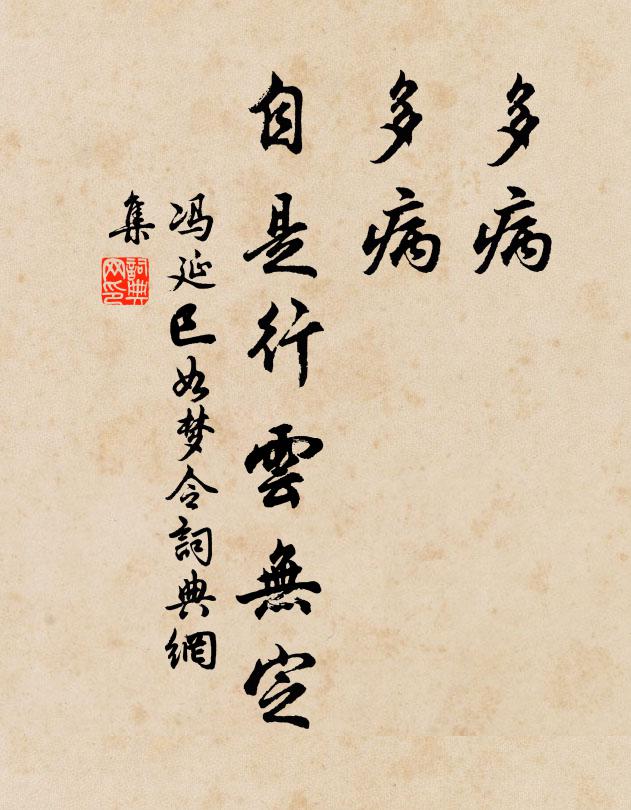 多病
多病
自是行雲無定
冯延巳如梦令詞典網
集
詞典
网印